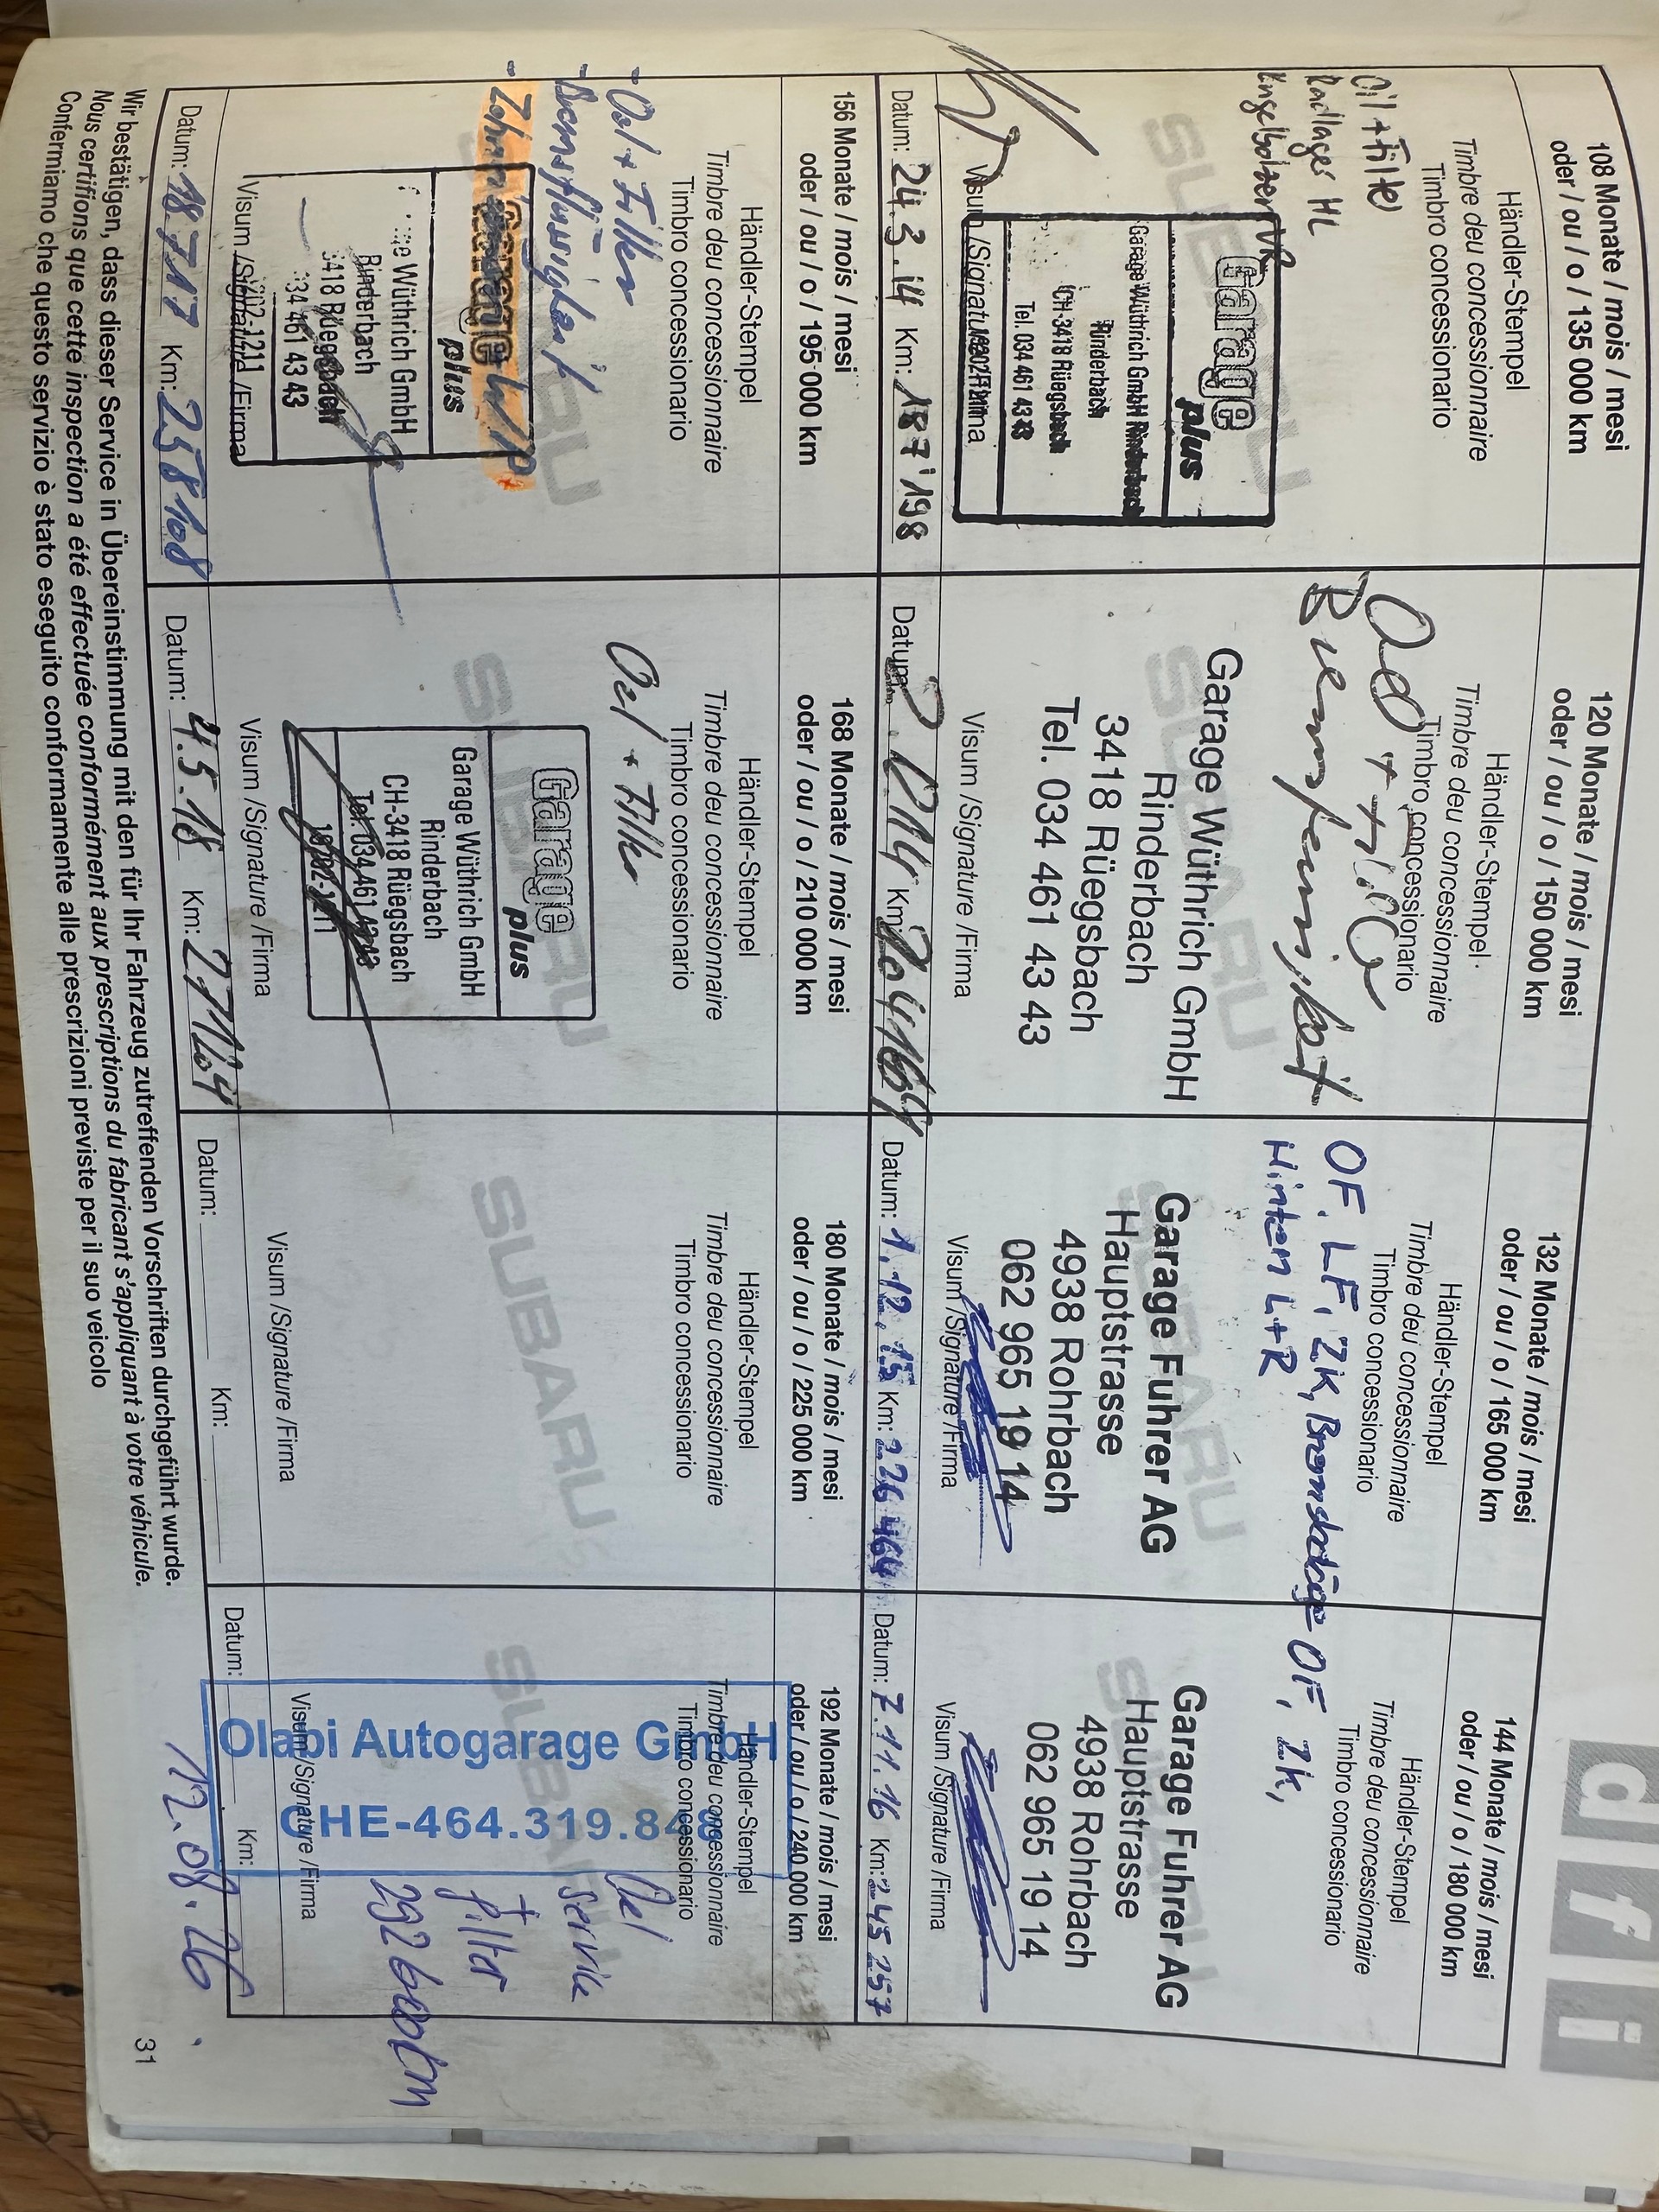 drfi
108 Monate / mois / mesi
oder / ou / o / 135 000 km
Händler-Stempel
Timbre deu concessionnaire
Timbro concessionario
Oil + Filter
Radlager HL
VR
SUBARU
Garage
plus
Garage Wüthrich GmbH
Rinderbach
CH-3418 Rüegsbach
Tel. 034 461 43 43
Visum /Signature /Firma
Datum: 24.3.14 Km: 187'198
120 Monate / mois / mesi
oder / ou / o / 150 000 km
Händler-Stempel
Timbre deu concessionnaire
Timbro concessionario
Oel + Filter
SUBARU
Garage Wüthrich GmbH
Rinderbach
3418 Rüegsbach
Tel. 034 461 43 43
Visum /Signature /Firma
Datum: Km: 204169
132 Monate / mois / mesi
oder / ou / o / 165 000 km
Händler-Stempel
Timbre deu concessionnaire
Timbro concessionario
OF. LF, ZK, Bremsbeläge
Hinten L+R
SUBARU
Garage Fuhrer AG
Hauptstrasse
4938 Rohrbach
062 965 19 14
Visum /Signature /Firma
Datum: 1.12.15 Km: 226 464
144 Monate / mois / mesi
oder / ou / o / 180 000 km
Händler-Stempel
Timbre deu concessionnaire
Timbro concessionario
OF, ZK,
SUBARU
Garage Fuhrer AG
Hauptstrasse
4938 Rohrbach
062 965 19 14
Visum /Signature /Firma
Datum: 7.11.16 Km: 245 257
156 Monate / mois / mesi
oder / ou / o / 195 000 km
Händler-Stempel
Timbre deu concessionnaire
Timbro concessionario
- Oel + Filter
- Bremsflüssigkeit
SUBARU
Garage
plus
Wüthrich GmbH
Rinderbach
3418 Rüegsbach
034 461 43 43
Visum /Signature /Firma
Datum: 18.7.17 Km: 258108
168 Monate / mois / mesi
oder / ou / o / 210 000 km
Händler-Stempel
Timbre deu concessionnaire
Timbro concessionario
Oel + Filter
SUBARU
Garage
plus
Garage Wüthrich GmbH
Rinderbach
CH-3418 Rüegsbach
Tel. 034 461 43 43
Visum /Signature /Firma
Datum: 4.5.18 Km: 271204
180 Monate / mois / mesi
oder / ou / o / 225 000 km
Händler-Stempel
Timbre deu concessionnaire
Timbro concessionario
SUBARU
Visum /Signature /Firma
Datum: Km:
192 Monate / mois / mesi
oder / ou / o / 240 000 km
Händler-Stempel
Timbre deu concessionnaire
Timbro concessionario
Oel
service
+
filter
SUBARU
Olabi Autogarage GmbH
CHE-464.319.848
Visum /Signature /Firma
Datum: Km:
Wir bestätigen, dass dieser Service in Übereinstimmung mit den für Ihr Fahrzeug zutreffenden Vorschriften durchgeführt wurde.
Nous certifions que cette inspection a été effectuée conformément aux prescriptions du fabricant s'appliquant à votre véhicule.
Confermiamo che questo servizio è stato eseguito conformamente alle prescrizioni previste per il suo veicolo
31